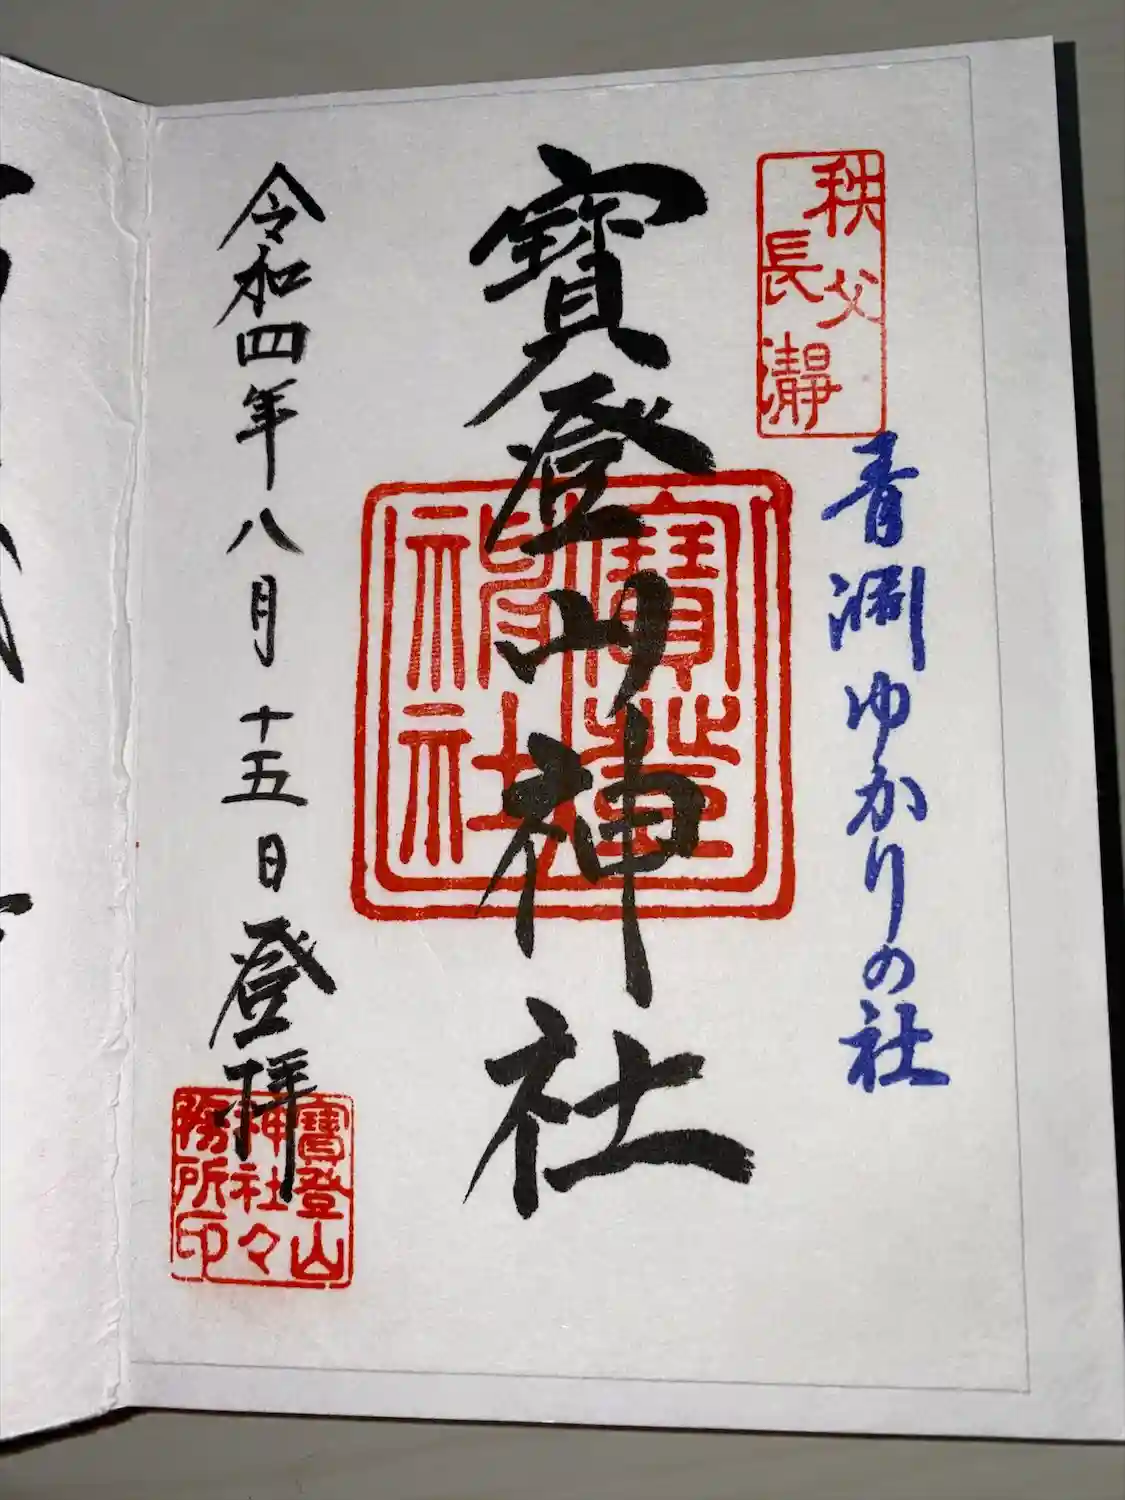 秩父
長瀞
青淵ゆかりの社
寳登山神社
寳登
神社
令和四年八月十五日登拝
寳登山
神社々
務所印